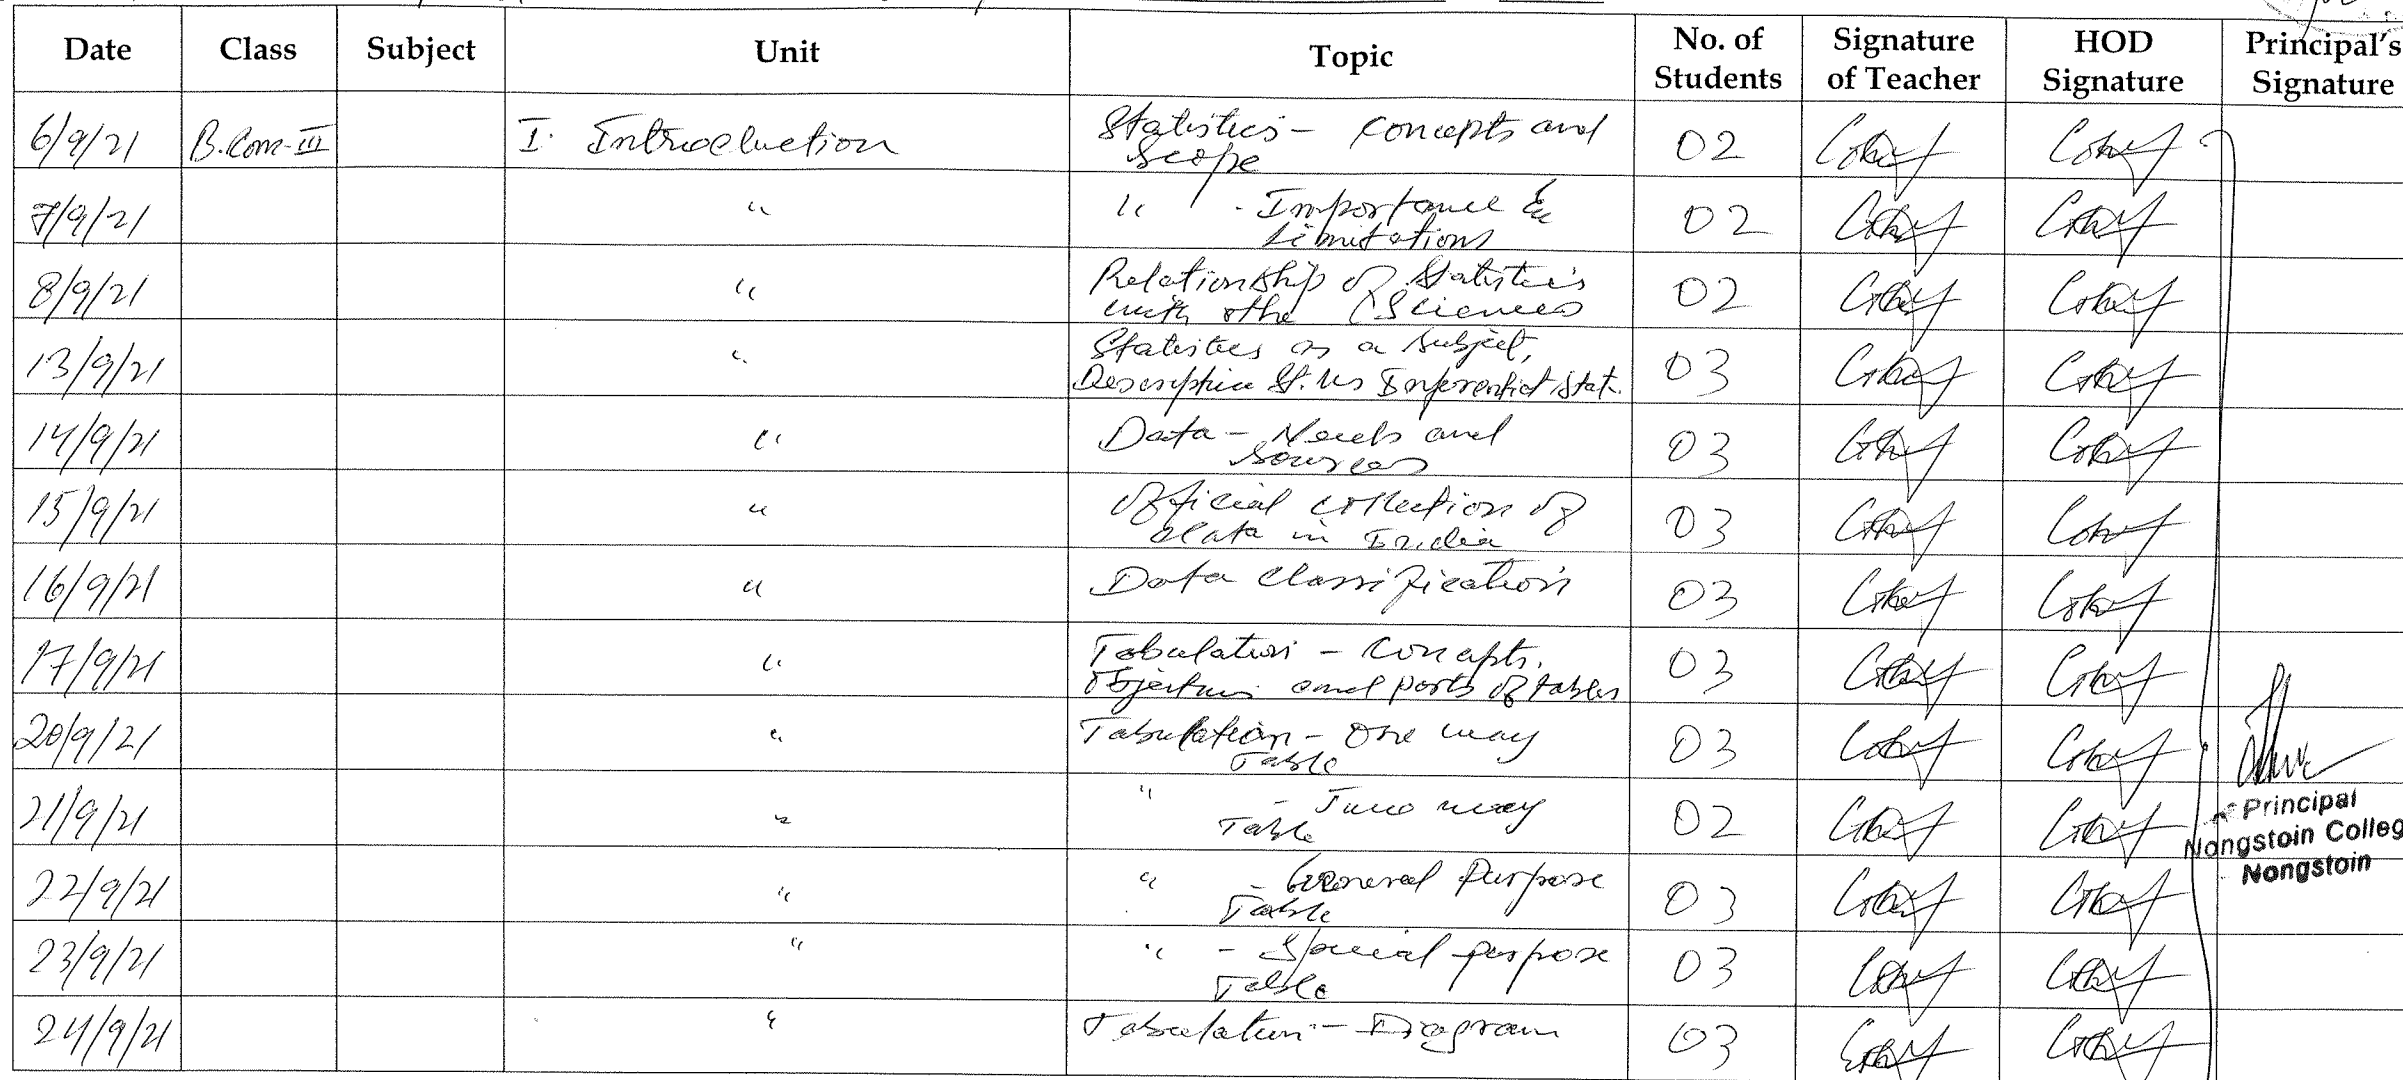 Date Class Subject Unit Topic No. of Students Signature of Teacher HOD Signature Principal's Signature
6/9/21 B.Com-III I. Introduction Statistics - Concepts and Scope 02
7/9/21 " " - Importance & Limitations 02
8/9/21 " Relationship of Statistics with othe Sciences 02
13/9/21 " Statistics as a Subject, Descriptive St. Vs Inferential Stat. 03
14/9/21 " Data - Needs and Sources 03
15/9/21 " Official collection of data in India 03
16/9/21 " Data Classification 03
17/9/21 " Tabulation - Concepts, Objectives and parts of tables 03
20/9/21 " Tabulation - One way Table 03
21/9/21 " " - Two way Table 02
22/9/21 " " - General Purpose Table 03
23/9/21 " " - Special purpose Table 03
24/9/21 " Tabulation - Diagram 03
Principal
Nongstoin Colleg
Nongstoin